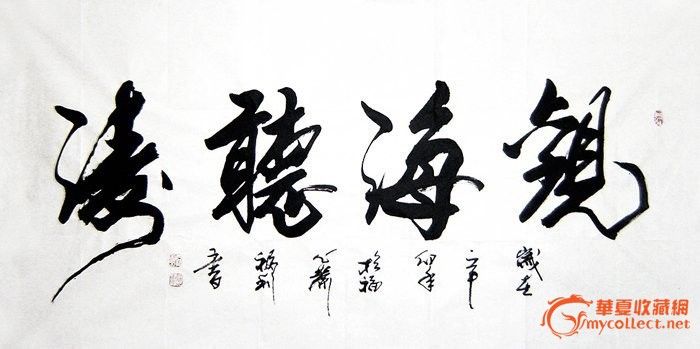 觀海聽濤
歲在辛卯年
書
華夏收藏網
mycollect.net